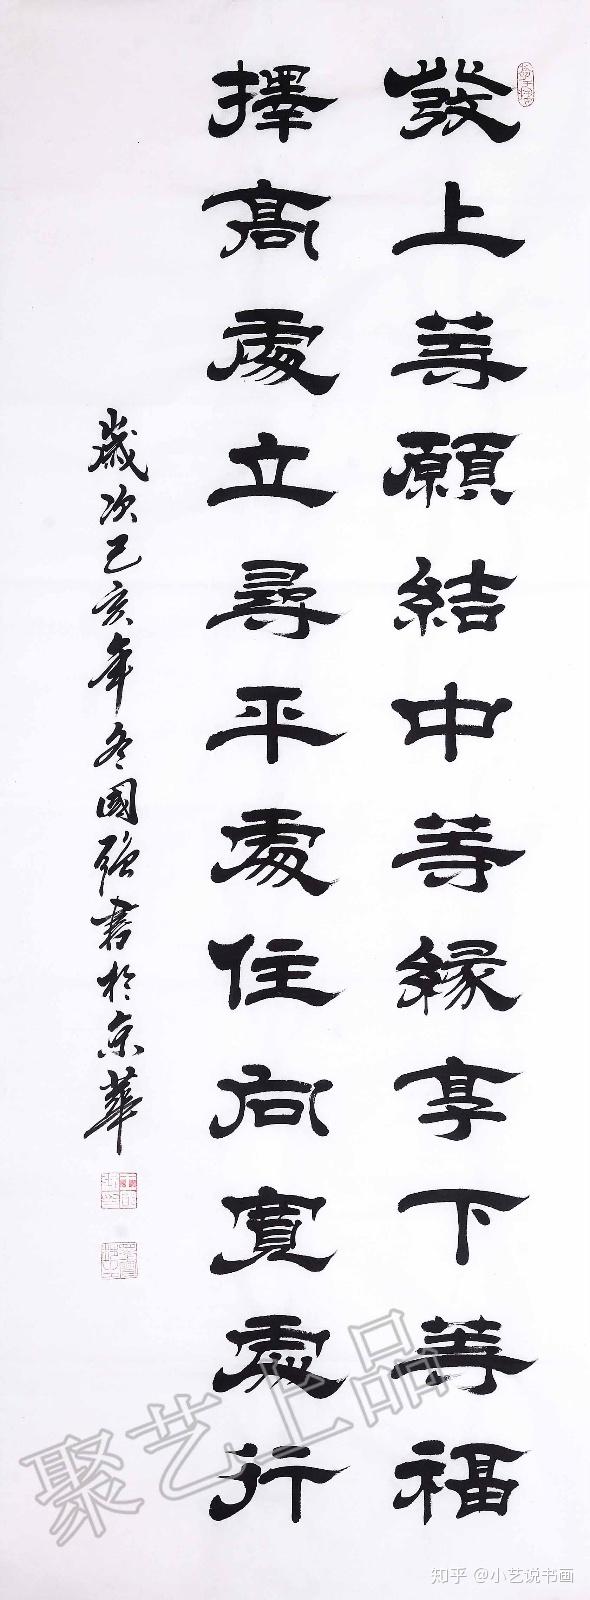 發上等願結中等緣享下等福
擇高處立尋平處住向寬處行
歲次己亥年冬國強書於京華
聚艺上品
知乎 @小艺说书画